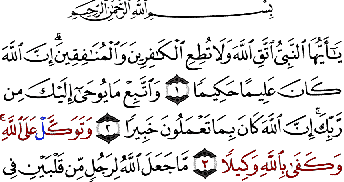 بِسْمِ اللَّهِ الرَّحْمَٰنِ الرَّحِيمِ
يَا أَيُّهَا النَّبِيُّ اتَّقِ اللَّهَ وَلَا تُطِعِ الْكَافِرِينَ وَالْمُنَافِقِينَ ۗ إِنَّ اللَّهَ
كَانَ عَلِيمًا حَكِيمًا ١ وَاتَّبِعْ مَا يُوحَىٰ إِلَيْكَ مِن
رَّبِّكَ ۚ إِنَّ اللَّهَ كَانَ بِمَا تَعْمَلُونَ خَبِيرًا ٢ وَتَوَكَّلْ عَلَى اللَّهِ ۚ
وَكَفَىٰ بِاللَّهِ وَكِيلًا ٣ مَّا جَعَلَ اللَّهُ لِرَجُلٍ مِّن قَلْبَيْنِ فِي